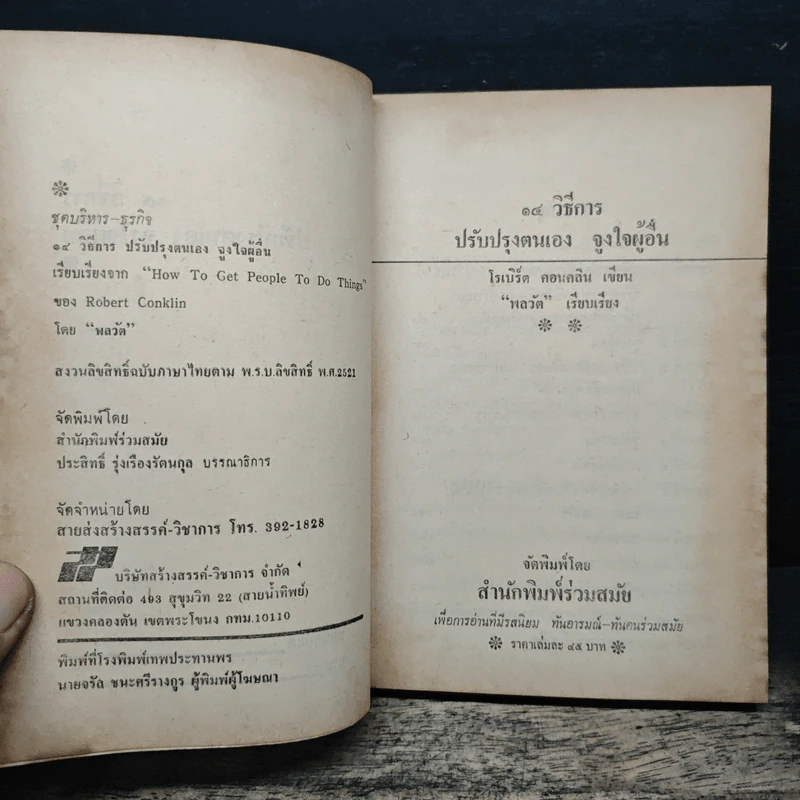 ชุดบริหาร-ธุรกิจ
๑๔ วิธีการ ปรับปรุงตนเอง จูงใจผู้อื่น
เรียบเรียงจาก “How To Get People To Do Things”
ของ Robert Conklin
โดย “พลวัต”
สงวนลิขสิทธิ์ฉบับภาษาไทยตาม พ.ร.บ.ลิขสิทธิ์ พ.ศ.2521
จัดพิมพ์โดย
สำนักพิมพ์ร่วมสมัย
ประสิทธิ์ รุ่งเรืองรัตนกุล บรรณาธิการ
จัดจำหน่ายโดย
สายส่งสร้างสรรค์-วิชาการ โทร. 392-1828
บริษัทสร้างสรรค์-วิชาการ จำกัด
สถานที่ติดต่อ 493 สุขุมวิท 22 (สายน้ำทิพย์)
แขวงคลองตัน เขตพระโขนง กทม.10110
พิมพ์ที่โรงพิมพ์เทพประทานพร
นายจรัล ชนะศรีรางกูร ผู้พิมพ์ผู้โฆษณา
๑๔ วิธีการ
ปรับปรุงตนเอง จูงใจผู้อื่น
โรเบิร์ต คอนคลิน เขียน
“พลวัต” เรียบเรียง
จัดพิมพ์โดย
สำนักพิมพ์ร่วมสมัย
เพื่อการอ่านที่มีรสนิยม ทันอารมณ์-ทันคนร่วมสมัย
ราคาเล่มละ ๔๕ บาท